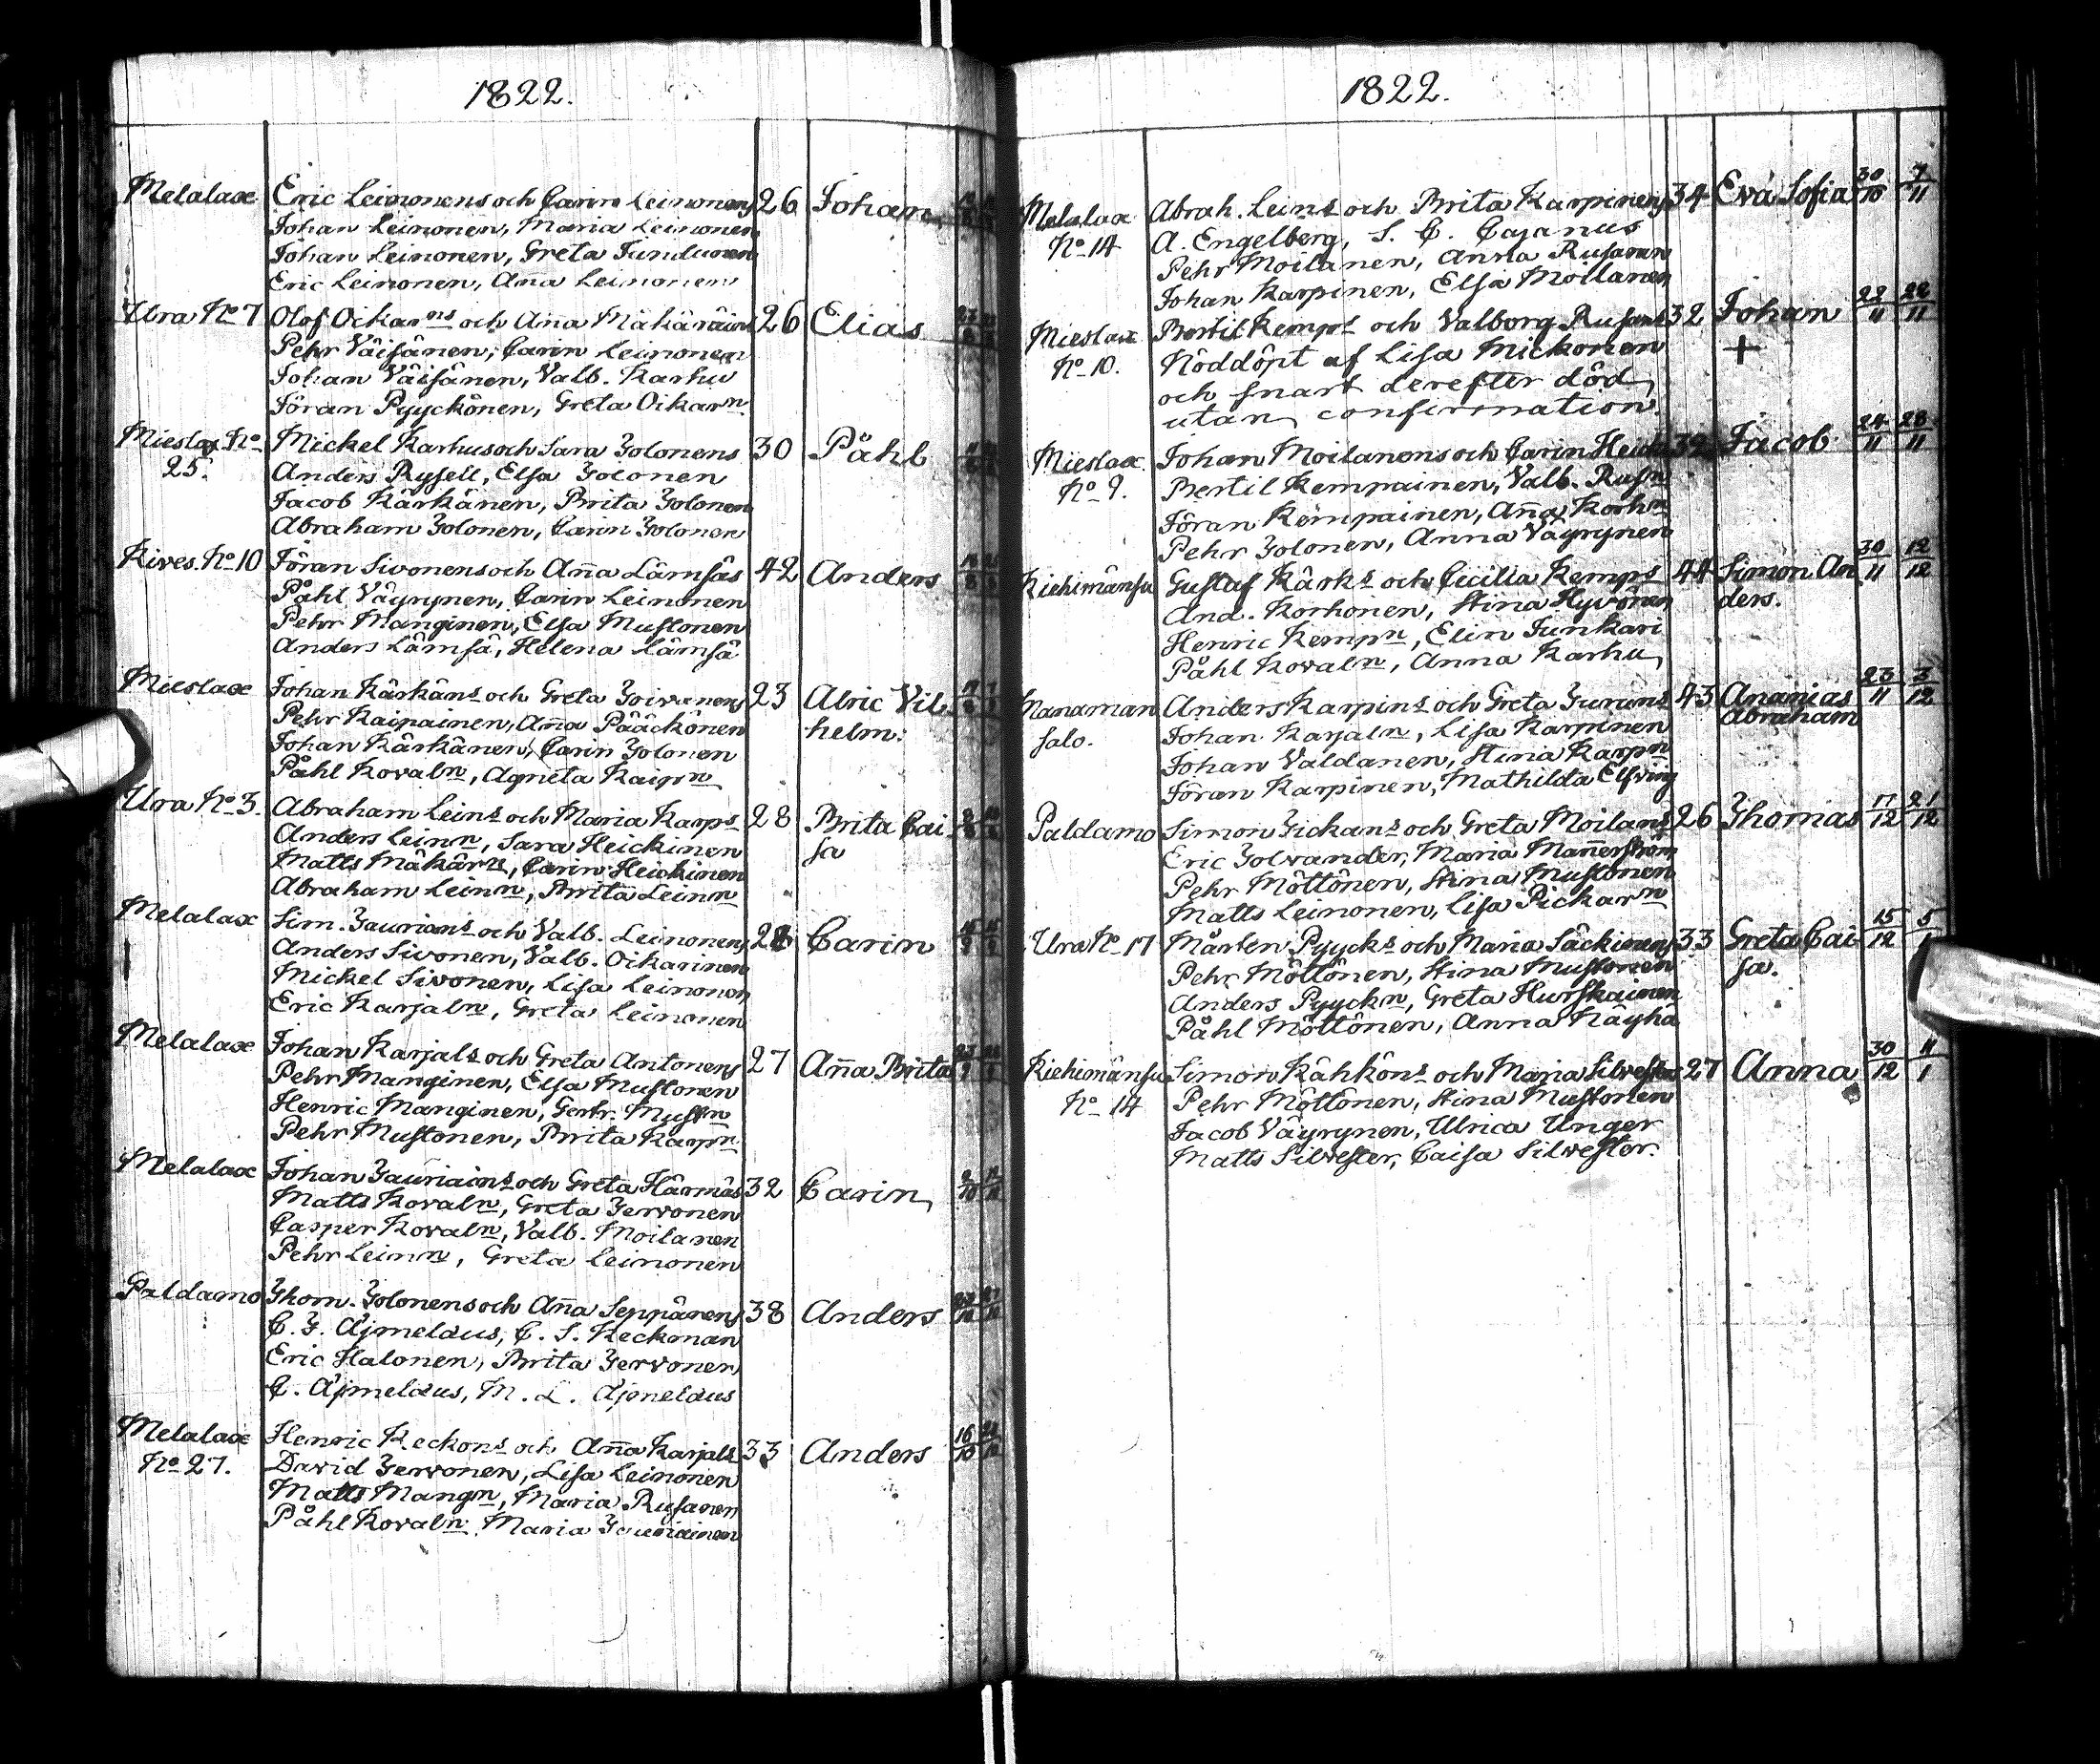 1822.
Melalax Eric Leinonens och Carin Leinonens 26 Johan
Johan Leinonen, Maria Leinonen
Johan Leinonen, Greta Tundunen
Eric Leinonen, Ana Leinonen
Ura No 7 Olof Oikarns och Ana Mäkäräins 26 Elias
Pehr Väisänen, Carin Leinonen
Johan Väisänen, Valb. Karhu
Jöran Pyyckönen, Greta Oikarn
Mieslax No Mickel Karhus och Sara Tolonens 30 Påhl
25. Anders Rysell, Elsa Tolonen
Jacob Kärkänen, Brita Tolonen
Abraham Tolonen, Carin Tolonen
Kives. No 10 Jöran Sivonens och Ana Lämsäs 42 Anders
Påhl Väyrynen, Carin Leinonen
Pehr Manginen, Elsa Mustonen
Anders Lämsä, Helena Lämsä
Mieslax Johan Kärkäns och Greta Toivanens 23 Alric Vil
Pehr Kaipainen, Ana Pääckönen helm:
Johan Kärkänen, Carin Tolonen
Påhl Kovaln, Agneta Kaipn
Ura No 3. Abraham Leins och Maria Karps 28 Brita Cai
Anders Leinn, Sara Heickinen sa
Matts Mäkärn, Carin Heickinen
Abraham Leinn, Brita Leinn
Melalax Sim. Taurians och Valb. Leinonens Carin
Anders Sivonen, Valb. Oikarinen
Mickel Sivonen, Lisa Leinonen
Eric Karjaln, Greta Leinonen
Melalax Johan Karjals och Greta Antonens 27 Ana Brita
Pehr Manginen, Elsa Mustonen
Henric Manginen, Gertr. Mustn
Pehr Mustonen, Brita Karpn
Melalax Johan Tauriains och Greta Härmäs 32 Carin
Matts Kovaln, Greta Tervonen
Casper Kovaln, Valb. Moilanen
Pehr Leinn, Greta Leinonen
Paldamo Thom. Tolonens och Ana Seppänens 38 Anders
C. F. Ajmelaus, C. S. Keckman
Eric Halonen, Brita Tervonen
C. Ajmelaus, M. L. Ajmelaus
Melalax Henric Keckons och Ana Karjals 33 Anders 16/10
No 27. David Tervonen, Lisa Leinonen
Matts Mangn, Maria Rusanen
Påhl Kovaln Maria Tauriainen
1822.
Melalax Abrah. Leins och Brita Karpinens 34 Eva Sofia 30/10 7/11
No 14 A. Engelberg, S. C. Cajanus
Pehr Moilanen, Anna Rusanen
Johan Karpinen, Elsa Moilanen
Mieslax Bertil Kemps och Valborg Rusans 32 Johan 22/11 22/11
No 10. Nöddöpt af Lisa Mickonen +
och snart derefter död,
utan confirmation.
Mieslax Johan Moilanens och Carin Heick 32 Jacob 24/11 28/11
No 9. Bertil Kempainen, Valb. Rusn
Jöran Kempainen, Ana Korhn
Pehr Tolonen, Anna Väyrynen
Kiehimänsu Gustaf Kärks och Cicilia Kemps 44 Simon An 30/11 12/12
And. Korhonen, Stina Hyvönen ders.
Henric Kempn, Elin Junkari
Påhl Kovaln, Anna Karhu
Manaman Anders Karpins och Greta Juruns 43 Ananias 23/11 3/12
salo. Johan Karjaln, Lisa Karpinen Abraham
Johan Valdanen, Stina Karpn
Jöran Karpinen, Mathilda Elfving
Paldamo Simon Tickans och Greta Moilans 26 Thomas 17/12 21/12
Eric Tolvander, Maria Manerström
Pehr Möttönen, Stina Mustonen
Matts Leinonen, Lisa Pickarn
Ura No 17 Mårten Pyycks och Maria Säckinens 33 Greta Cai 15/12 5/1
Pehr Möttönen, Stina Mustonen sa.
Anders Pyyckn, Greta Hurskainen
Påhl Möttönen, Anna Näyhä
Kiehimänsu Simon Kähköns och Maria Silvesters 27 Anna 30/12 11/1
No 14 Pehr Möttönen, Stina Mustonen
Jacob Väyrynen, Ulrica Unger
Matts Silvester, Caisa Silvester.